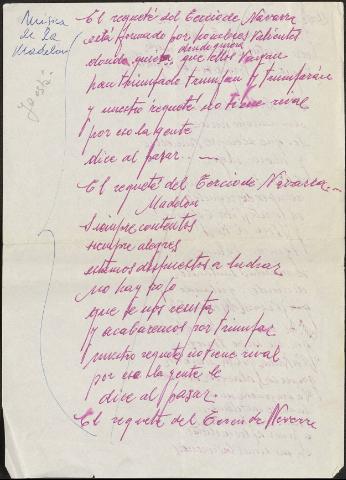 Música
de La
Madelon
Ya está
El requeté del Tercio de Navarra
está formado por hombres valientes
donde quiera donde quiera que ellos vayan
han triunfado triunfan y triunfarán
y nuestro requeté no tiene rival
por eso la gente
dice al pasar...
El requeté del Tercio de Navarra
Madelon
siempre contentos
siempre alegres
estamos dispuestos a luchar
no hay rojo
que se nos resista
y acabaremos por triunfar
nuestro requeté no tiene rival
por eso la gente le
dice al pasar.
El requeté del Tercio de Navarra